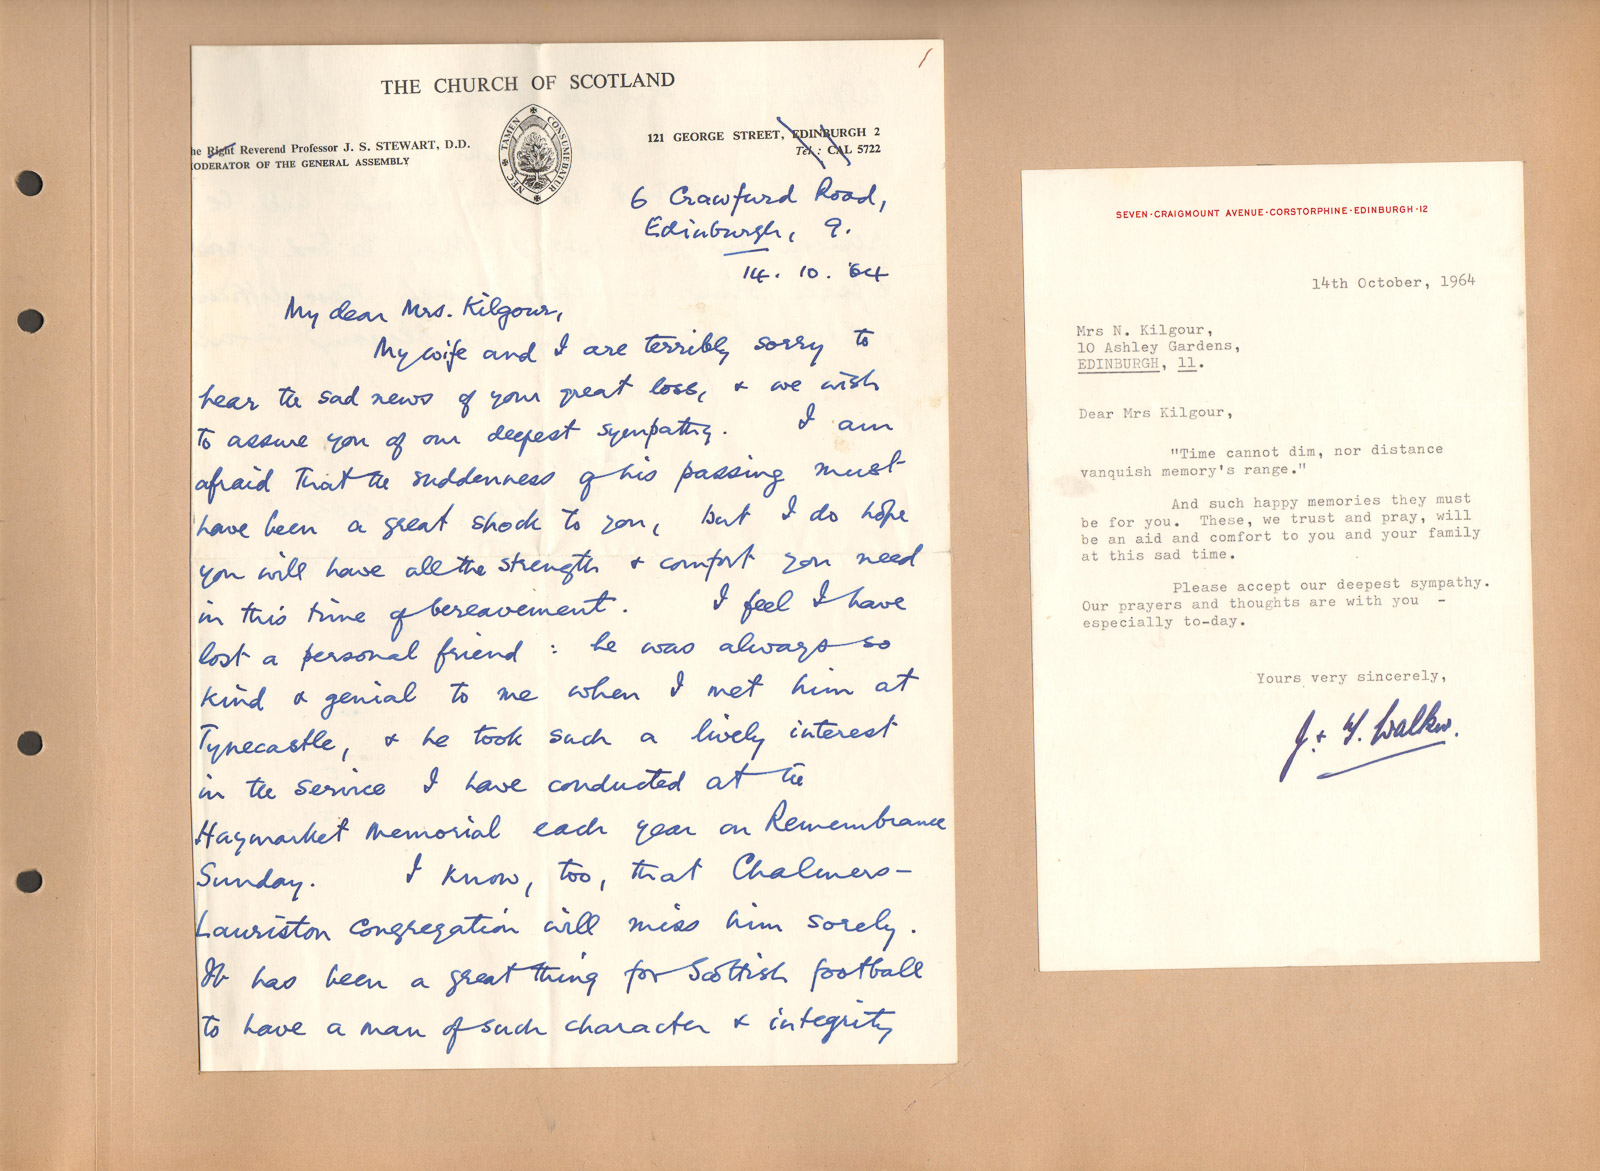 THE CHURCH OF SCOTLAND
he Right Reverend Professor J. S. STEWART, D.D.
ODERATOR OF THE GENERAL ASSEMBLY
NEC TAMEN CONSUMEBATUR
121 GEORGE STREET, EDINBURGH 2
Tel.: CAL 5722
6 Crawfurd Road,
Edinburgh, 9.
14. 10. '64
My dear Mrs. Kilgour,
My wife and I are terribly sorry to
hear the sad news of your great loss, & we wish
to assure you of our deepest sympathy. I am
afraid that the suddenness of his passing must
have been a great shock to you, but I do hope
you will have all the strength & comfort you need
in this time of bereavement. I feel I have
lost a personal friend : he was always so
kind & genial to me when I met him at
Tynecastle, & he took such a lively interest
in the service I have conducted at the
Haymarket Memorial each year on Remembrance
Sunday. I know, too, that Chalmers-
Lauriston congregation will miss him sorely.
It has been a great thing for Scottish football
to have a man of such character & integrity
SEVEN·CRAIGMOUNT AVENUE·CORSTORPHINE·EDINBURGH·12
14th October, 1964
Mrs N. Kilgour,
10 Ashley Gardens,
EDINBURGH, 11.
Dear Mrs Kilgour,
"Time cannot dim, nor distance
vanquish memory's range."
And such happy memories they must
be for you. These, we trust and pray, will
be an aid and comfort to you and your family
at this sad time.
Please accept our deepest sympathy.
Our prayers and thoughts are with you -
especially to-day.
Yours very sincerely,
J. & Y. Walker.